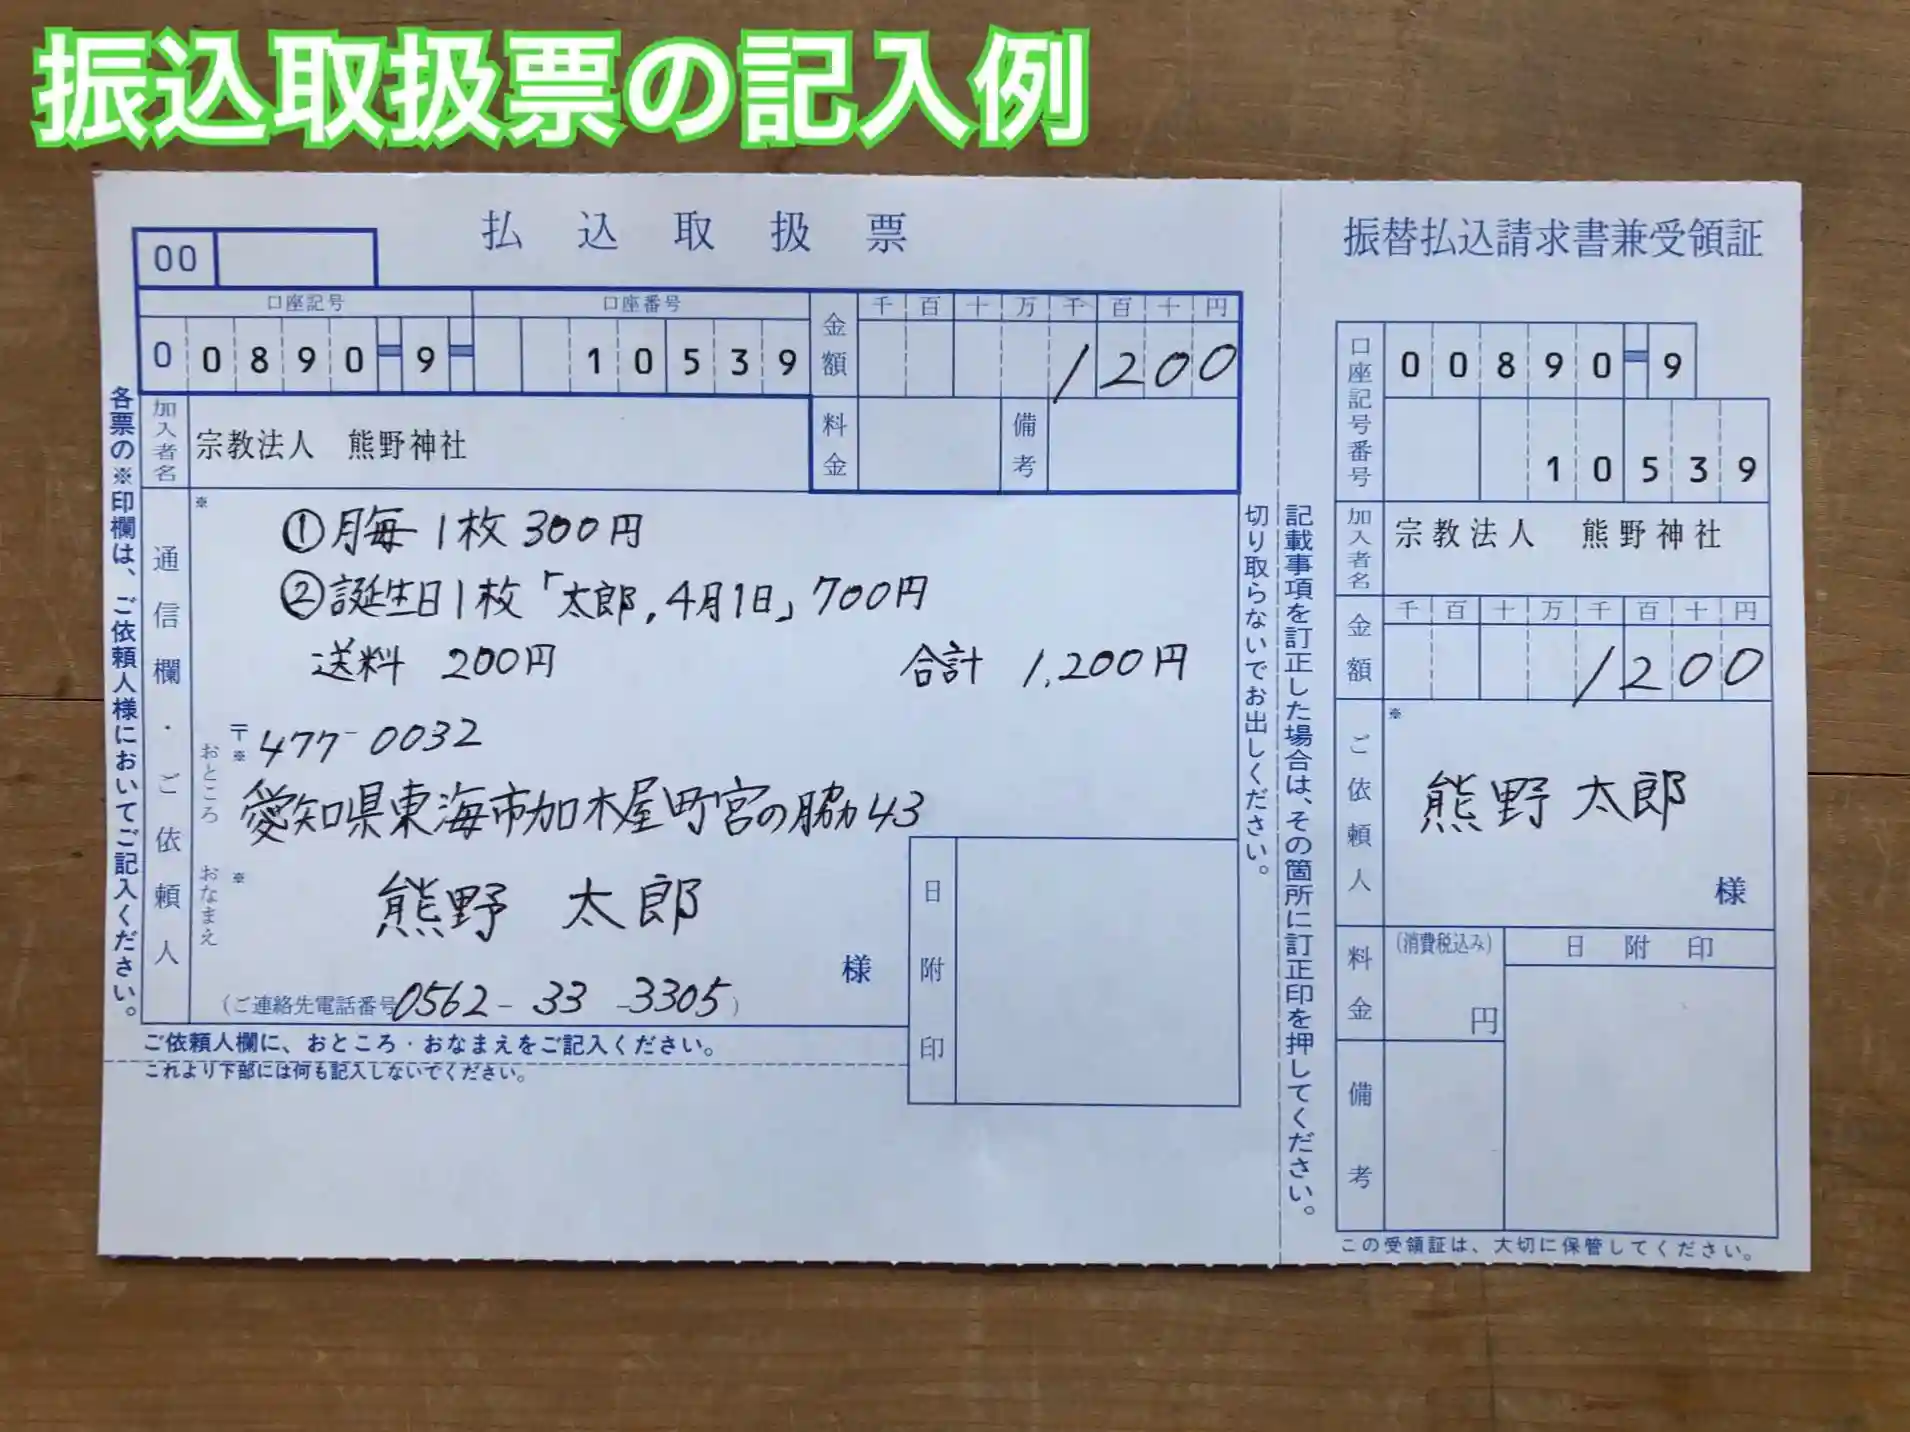 振込取扱票の記入例
払込取扱票
00
口座記号 口座番号
0 0890-9- 10539
金額 千百十万千百十円
1200
加入者名 宗教法人 熊野神社
料金 備考
各票の※印欄は、ご依頼人様においてご記入ください。
通信欄・ご依頼人
※
①月毎1枚 300円
②誕生日1枚「太郎,4月1日」700円
送料 200円 合計 1,200円
〒477-0032
おところ ※
愛知県東海市加木屋町宮の脇43
おなまえ ※
熊野 太郎
様
(ご連絡先電話番号0562-33-3305)
日附印
ご依頼人欄に、おところ・おなまえをご記入ください。
これより下部には何も記入しないでください。
切り取らないでお出しください。
記載事項を訂正した場合は、その箇所に訂正印を押してください。
振替払込請求書兼受領証
口座記号番号
00890-9
10539
加入者名 宗教法人 熊野神社
金額 千百十万千百十円
1200
ご依頼人
※
熊野 太郎
様
料金 (消費税込み)
円
日附印
備考
この受領証は、大切に保管してください。